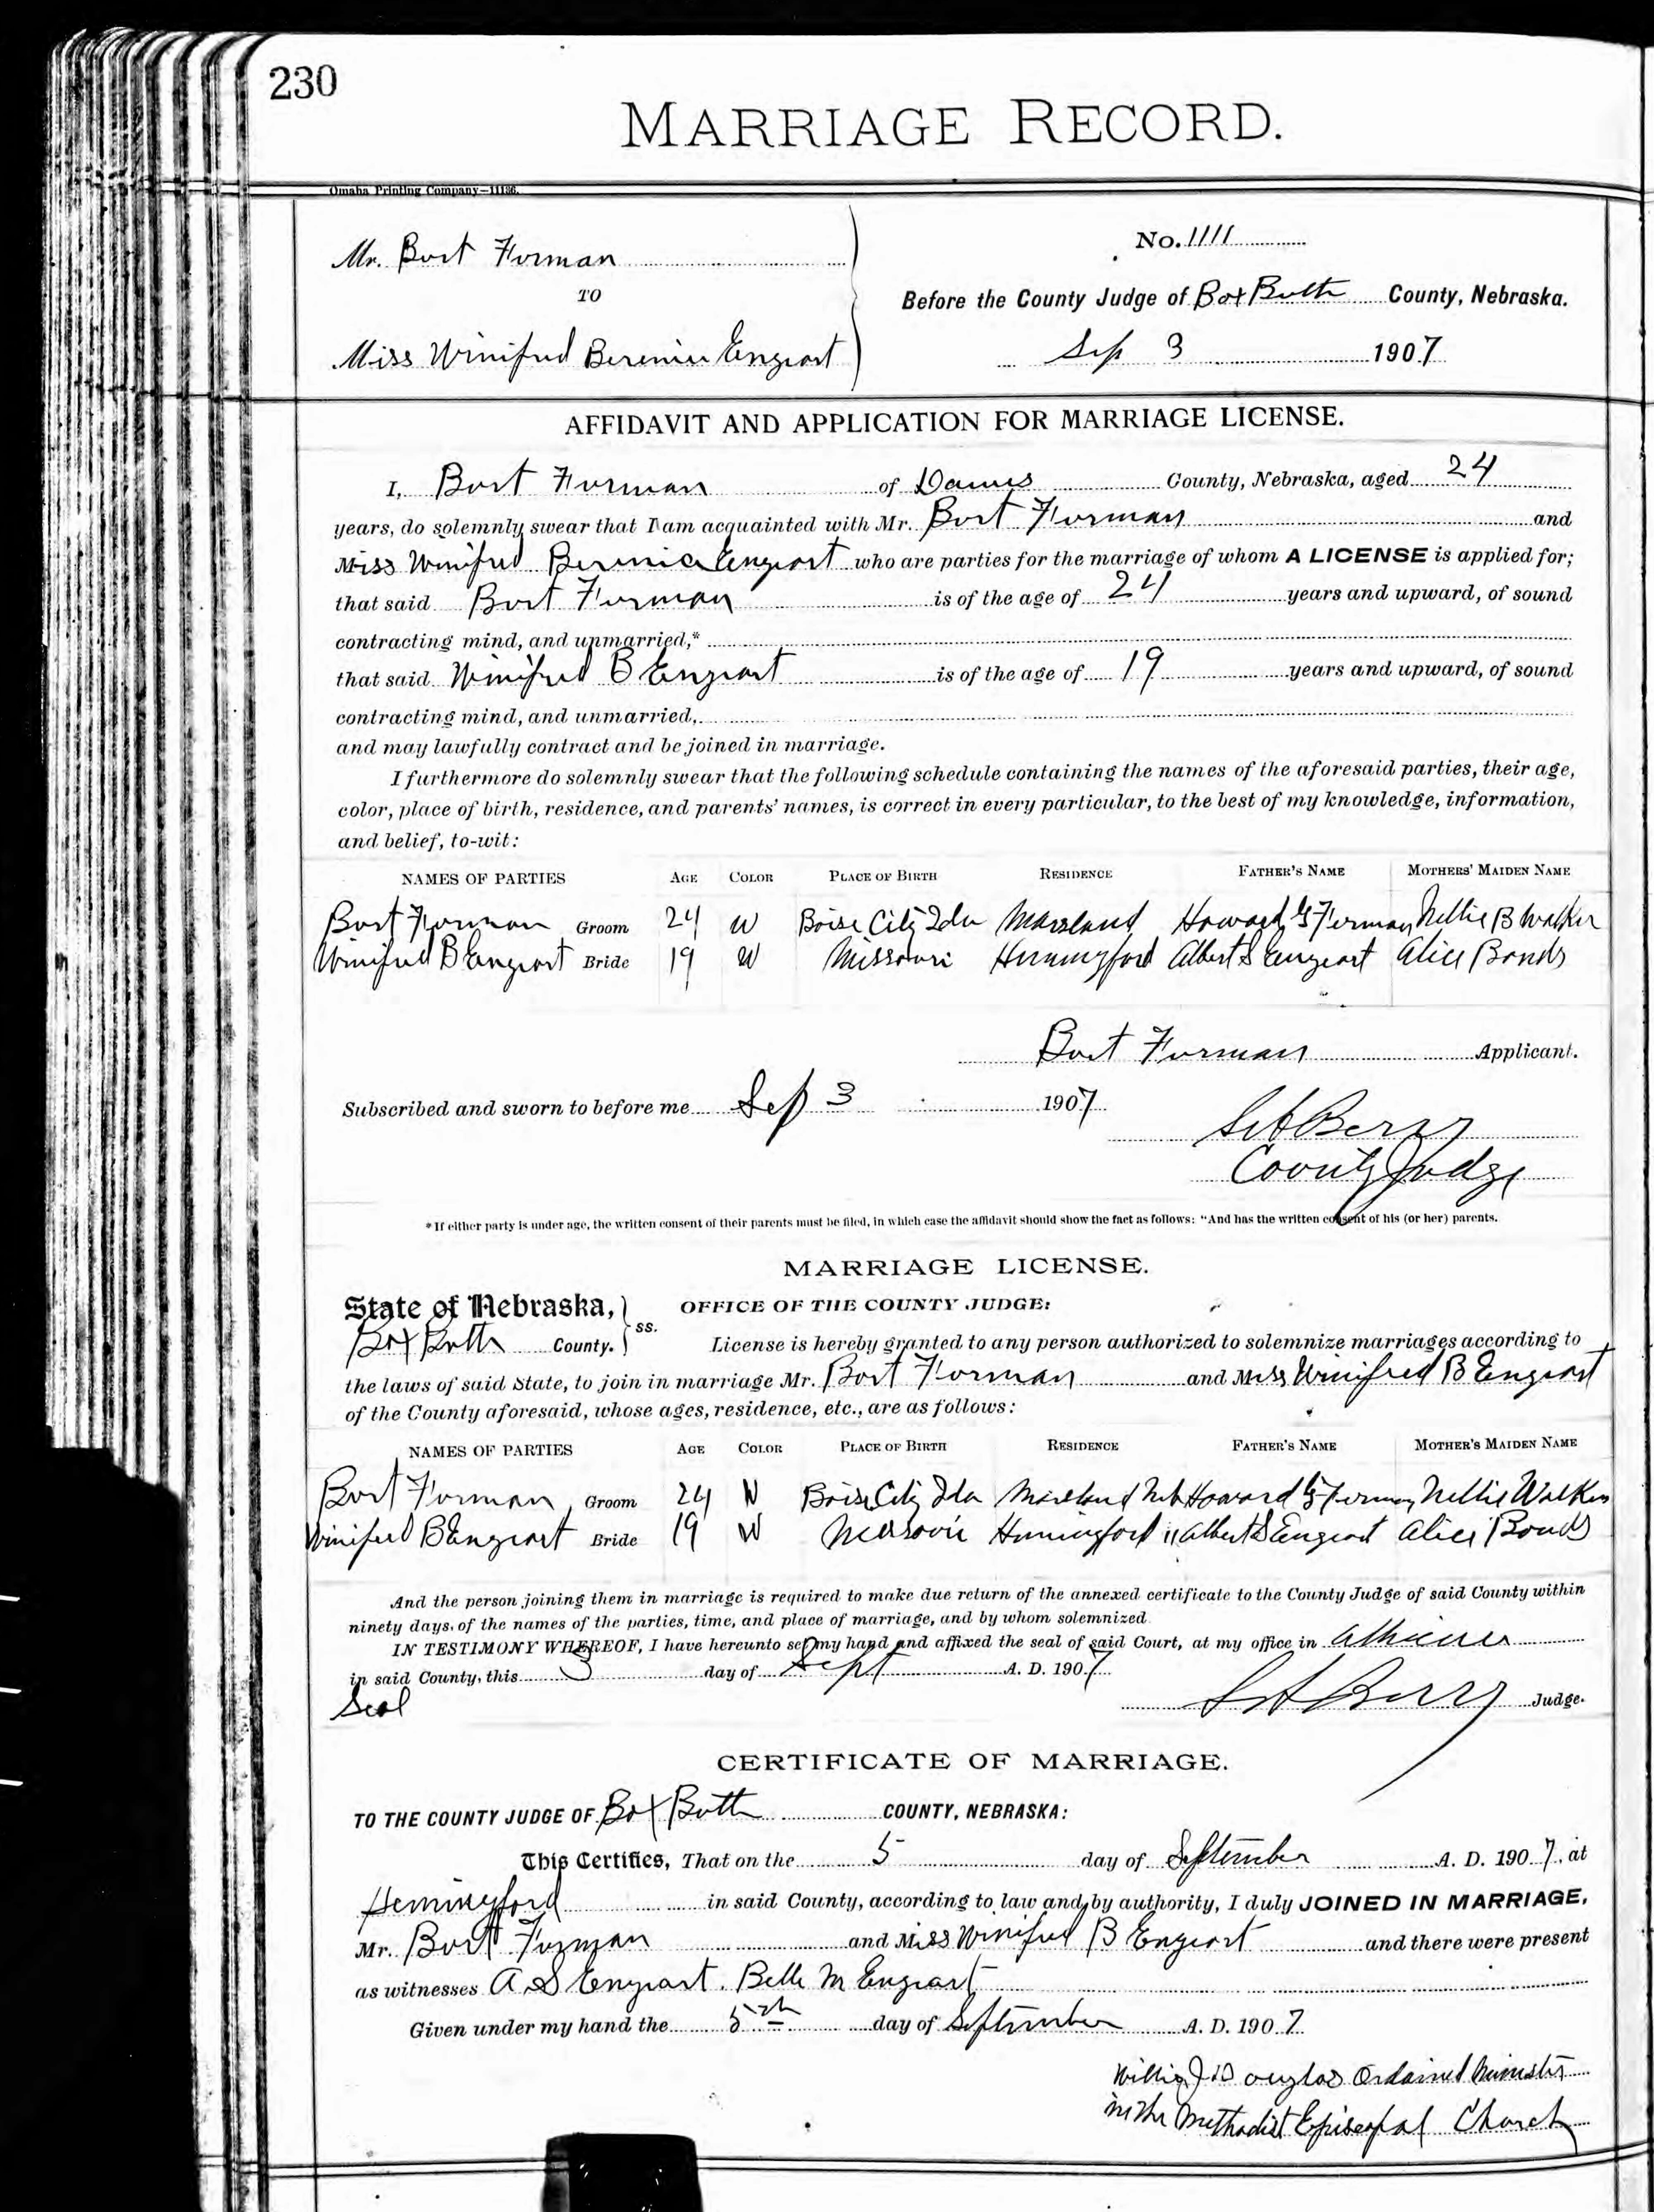 230
MARRIAGE RECORD.
Omaha Printing Company—11136.
Mr. Burt Furman
TO
Miss Winifred Berenice Engeart
No. 1111
Before the County Judge of Box Butte County, Nebraska.
Sep 3 1907
AFFIDAVIT AND APPLICATION FOR MARRIAGE LICENSE.
I, Burt Furman of Dawes County, Nebraska, aged 24
years, do solemnly swear that I am acquainted with Mr. Burt Furman and
Miss Winifred Berenice Engeart who are parties for the marriage of whom A LICENSE is applied for;
that said Burt Furman is of the age of 24 years and upward, of sound
contracting mind, and unmarried,*
that said Winifred B Engeart is of the age of 19 years and upward, of sound
contracting mind, and unmarried,
and may lawfully contract and be joined in marriage.
I furthermore do solemnly swear that the following schedule containing the names of the aforesaid parties, their age,
color, place of birth, residence, and parents' names, is correct in every particular, to the best of my knowledge, information,
and belief, to-wit:
NAMES OF PARTIES AGE COLOR PLACE OF BIRTH RESIDENCE FATHER'S NAME MOTHERS' MAIDEN NAME
Burt Furman Groom 24 W Boise City Ida Marsland Howard G Furman Nellie B Walker
Winifred B Engeart Bride 19 W Missouri Hemingford Albert S Engeart Alice Bonds
Burt Furman Applicant.
Subscribed and sworn to before me Sep 3 1907
Berry
County Judge
*If either party is under age, the written consent of their parents must be filed, in which case the affidavit should show the fact as follows: "And has the written consent of his (or her) parents.
MARRIAGE LICENSE.
State of Nebraska, OFFICE OF THE COUNTY JUDGE:
Box Butte County. ss. License is hereby granted to any person authorized to solemnize marriages according to
the laws of said State, to join in marriage Mr. Burt Furman and Miss Winifred B Engeart
of the County aforesaid, whose ages, residence, etc., are as follows:
NAMES OF PARTIES AGE COLOR PLACE OF BIRTH RESIDENCE FATHER'S NAME MOTHER'S MAIDEN NAME
Burt Furman Groom 24 W Boise City Ida Marsland Neb Howard G Furman Nellie Walker
Winifred B Engeart Bride 19 W Missouri Hemingford " Albert S Engeart Alice Bonds
And the person joining them in marriage is required to make due return of the annexed certificate to the County Judge of said County within
ninety days, of the names of the parties, time, and place of marriage, and by whom solemnized
IN TESTIMONY WHEREOF, I have hereunto set my hand and affixed the seal of said Court, at my office in Alliance
in said County, this 3 day of Sept A. D. 1907
Seal Berry Judge.
CERTIFICATE OF MARRIAGE.
TO THE COUNTY JUDGE OF Box Butte COUNTY, NEBRASKA:
This Certifies, That on the 5 day of September A. D. 1907, at
Hemingford in said County, according to law and by authority, I duly JOINED IN MARRIAGE,
Mr. Burt Furman and Miss Winifred B Engeart and there were present
as witnesses A S Engeart. Belle M Engeart
Given under my hand the 5th day of September A. D. 1907
Douglas Ordained Minister
in the Methodist Episcopal Church